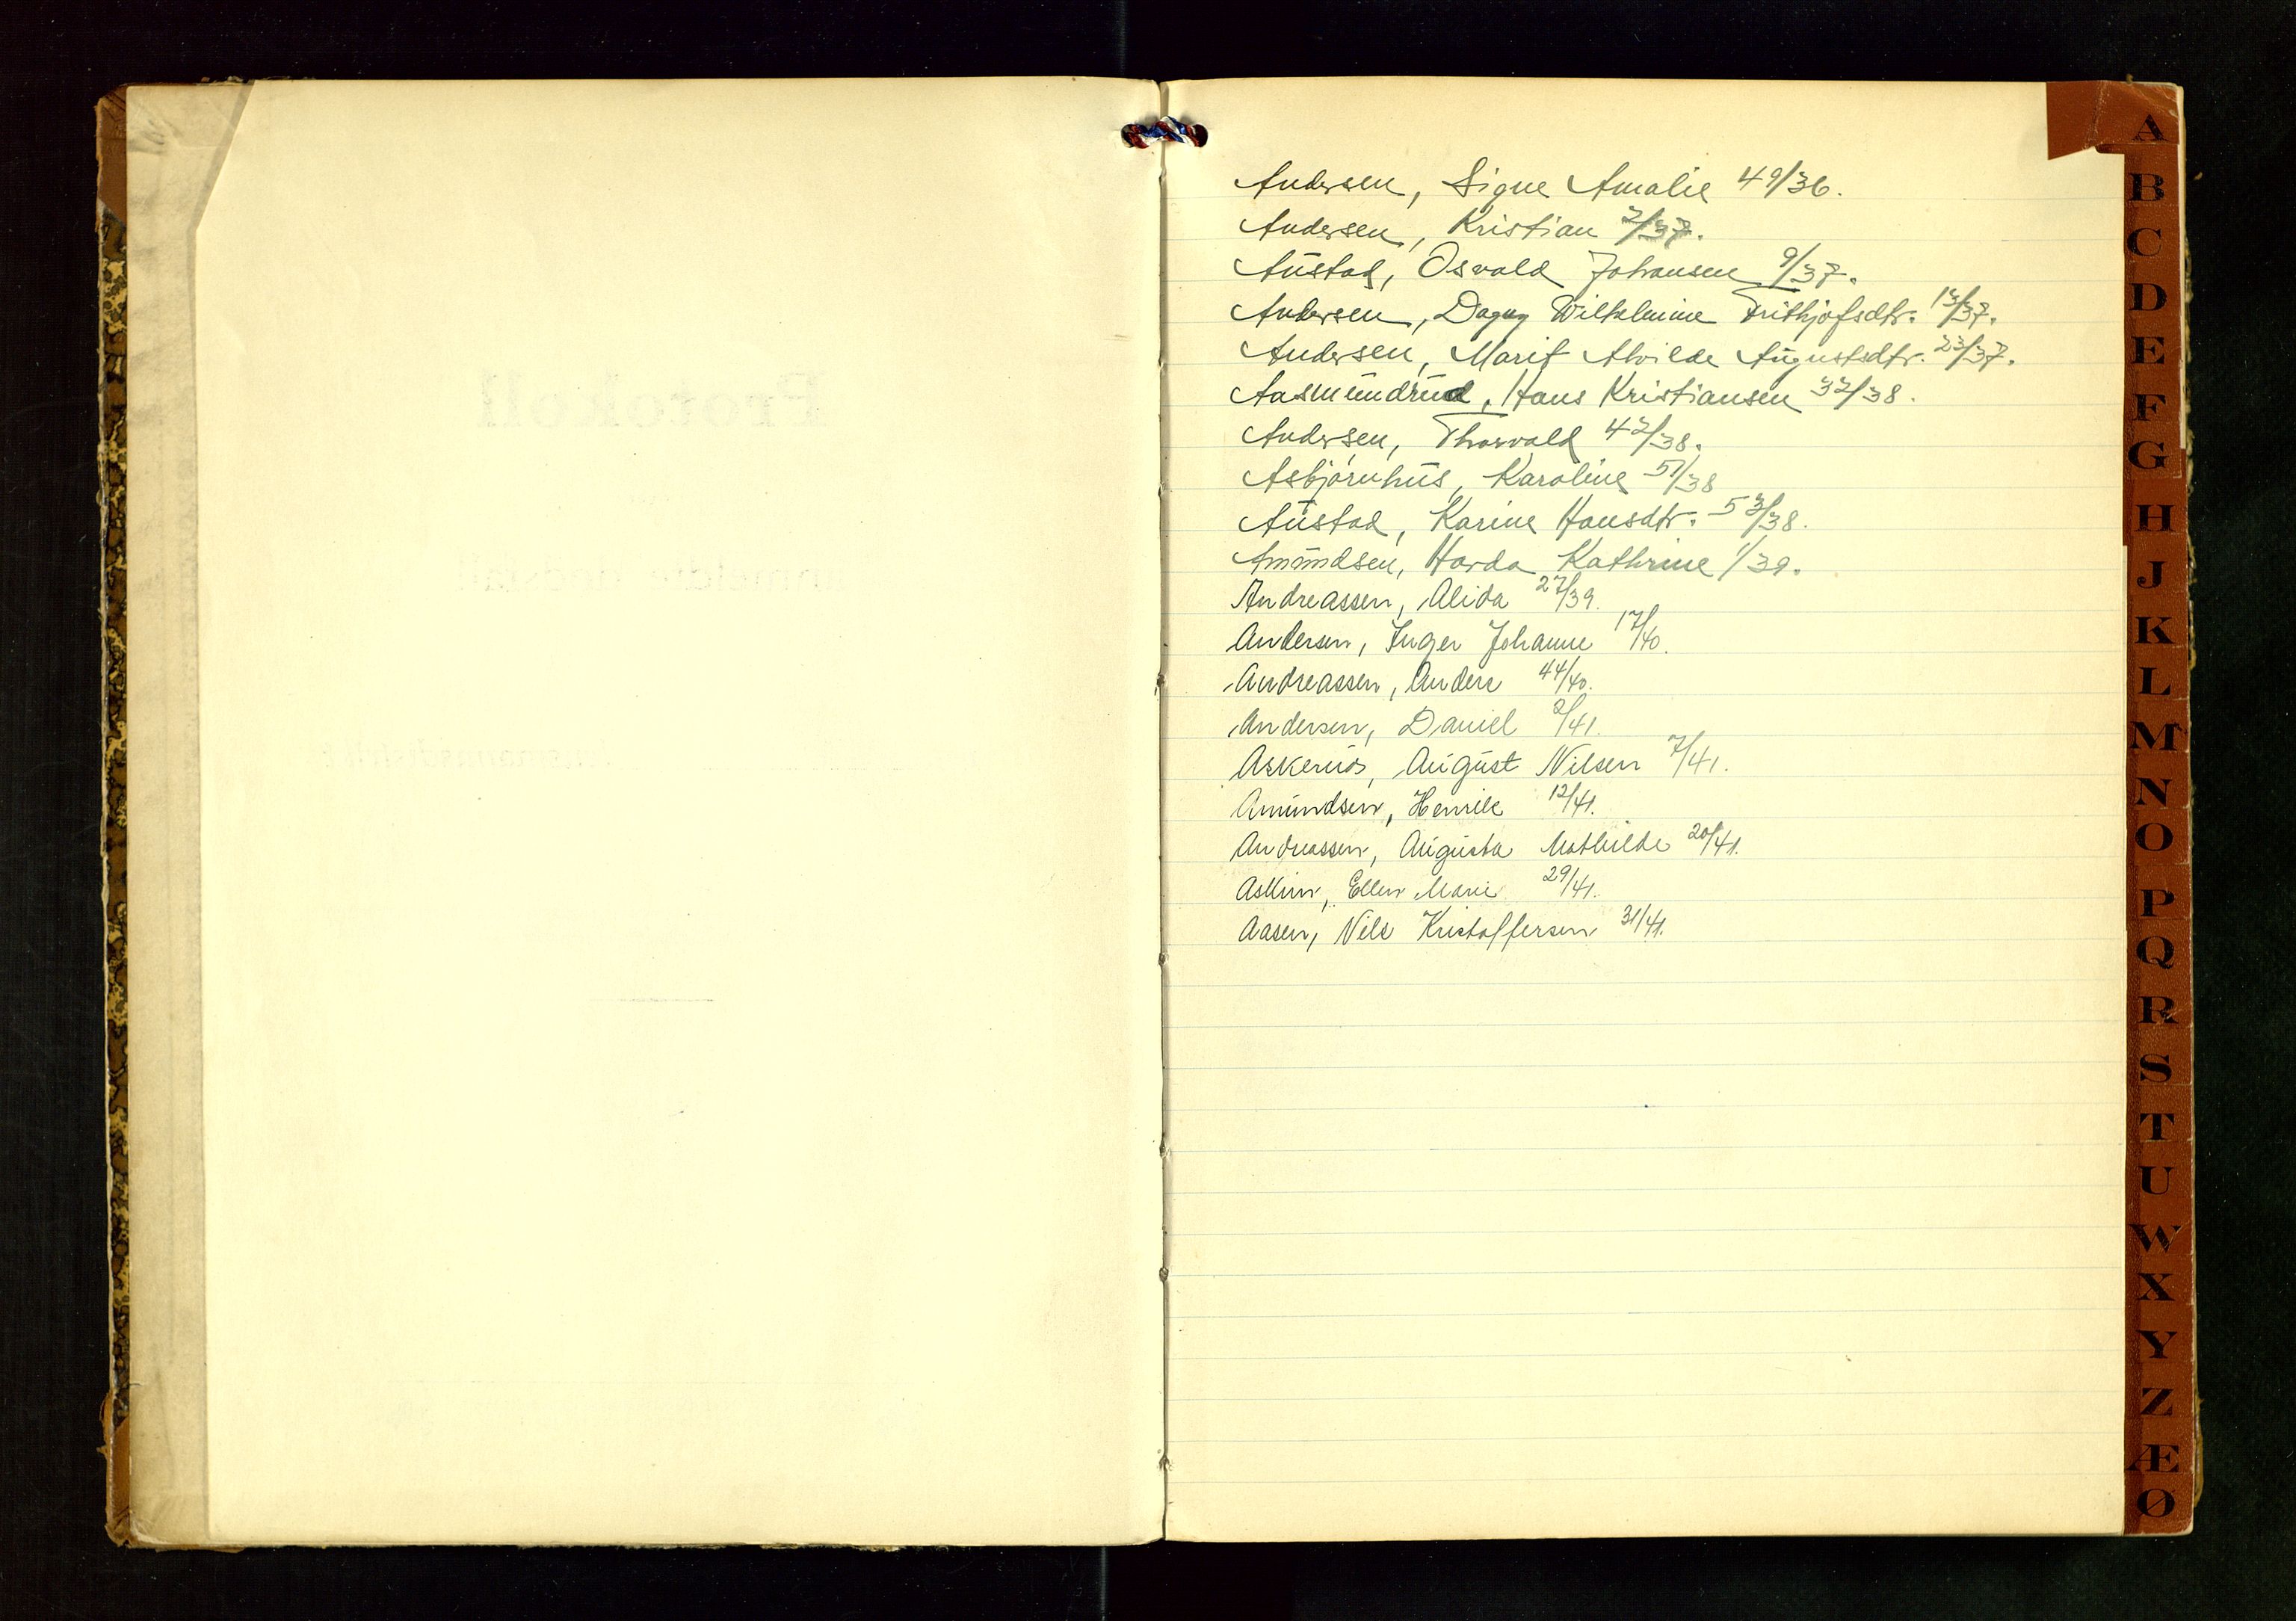 Andersen, Signe Amalie 49/36.
Andersen, Kristian 2/37.
Austad, Osvald Johansen 9/37.
Andersen, Dagny Wilhelmine Frithjofsdtr. 13/37.
Andersen, Marit Alvilde Augustsdtr. 23/37.
Aasmundrud, Hans Kristiansen 32/38.
Andersen, Thorvald 42/38.
Asbjørnhus, Karoline 51/38
Austad, Karine Hansdtr. 53/38.
Amundsen, Harda Kathrine 1/39.
Andreassen, Alida 27/39.
Andersen, Inger Johanne 17/40.
Andreassen, Anders 44/40.
Andersen, Daniel 2/41.
August Nilsen 7/41.
Amundsen, Henrik 12/41.
Andreassen, Augusta Mathilde 20/41.
Askim, Ellen Marie 29/41.
Aasen, Nils Kristoffersen 31/41.
A
B
C
D
E
F
G
H
J
K
L
M
N
O
P
Q
R
S
T
U
W
X
Y
Z
Æ
Ø